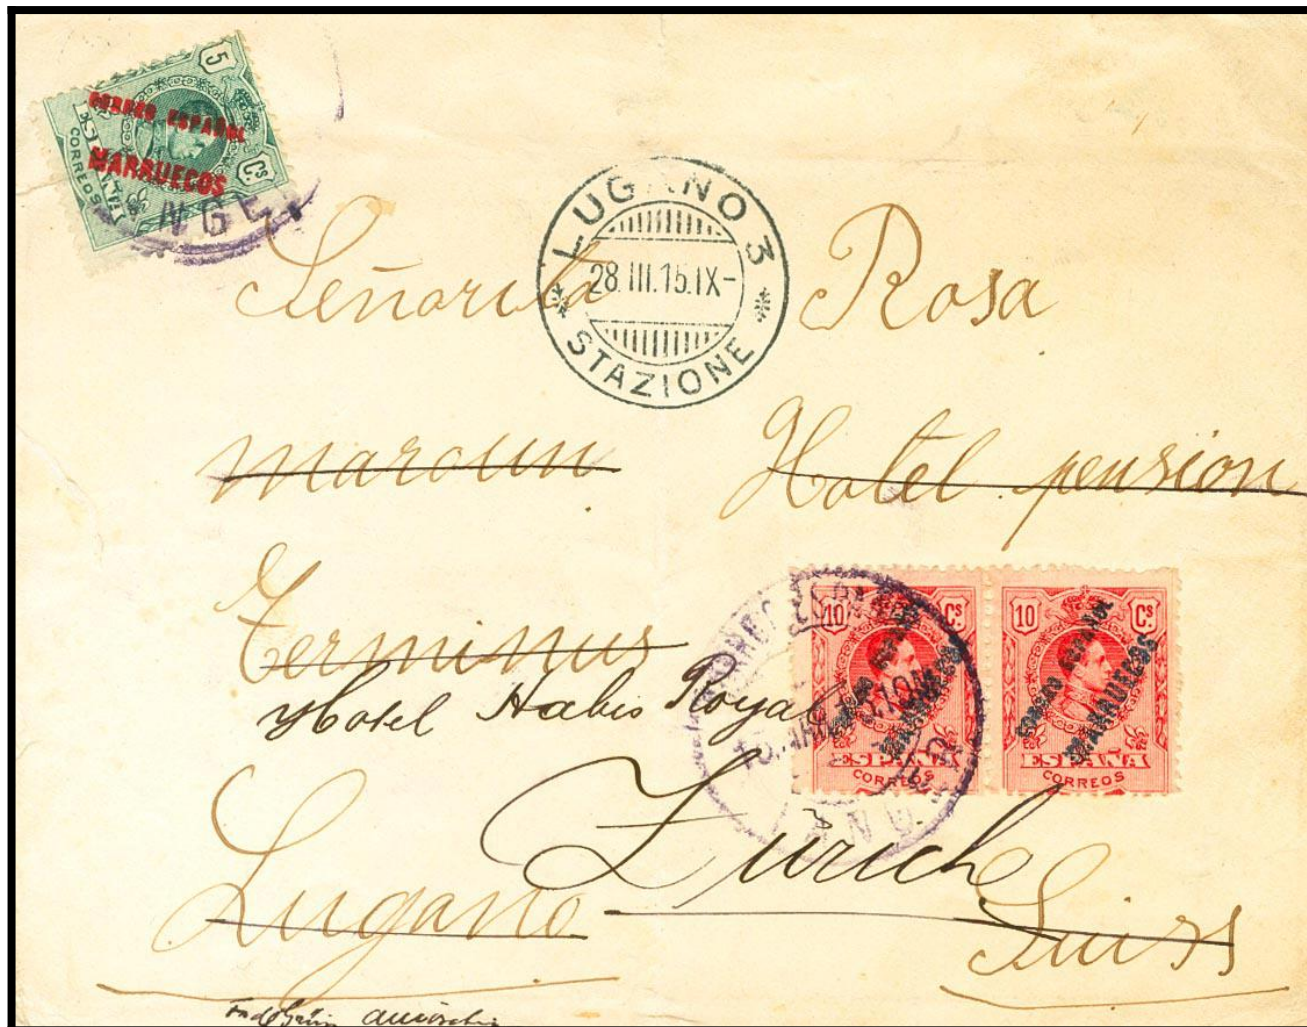 5 Cs
CORREO ESPAÑOL
MARRUECOS
ESPAÑA
CORREOS
NGE
LUGANO 3
28.III.15.IX-
STAZIONE
Señorita Rosa
maroun Hotel pension
Terminus
Hotel Habis Royal
Zürich
Lugano Suiss
10 Cs
CORREO ESPAÑOL
MARRUECOS
ESPAÑA
CORREOS
10 Cs
CORREO ESPAÑOL
MARRUECOS
ESPAÑA
CORREOS